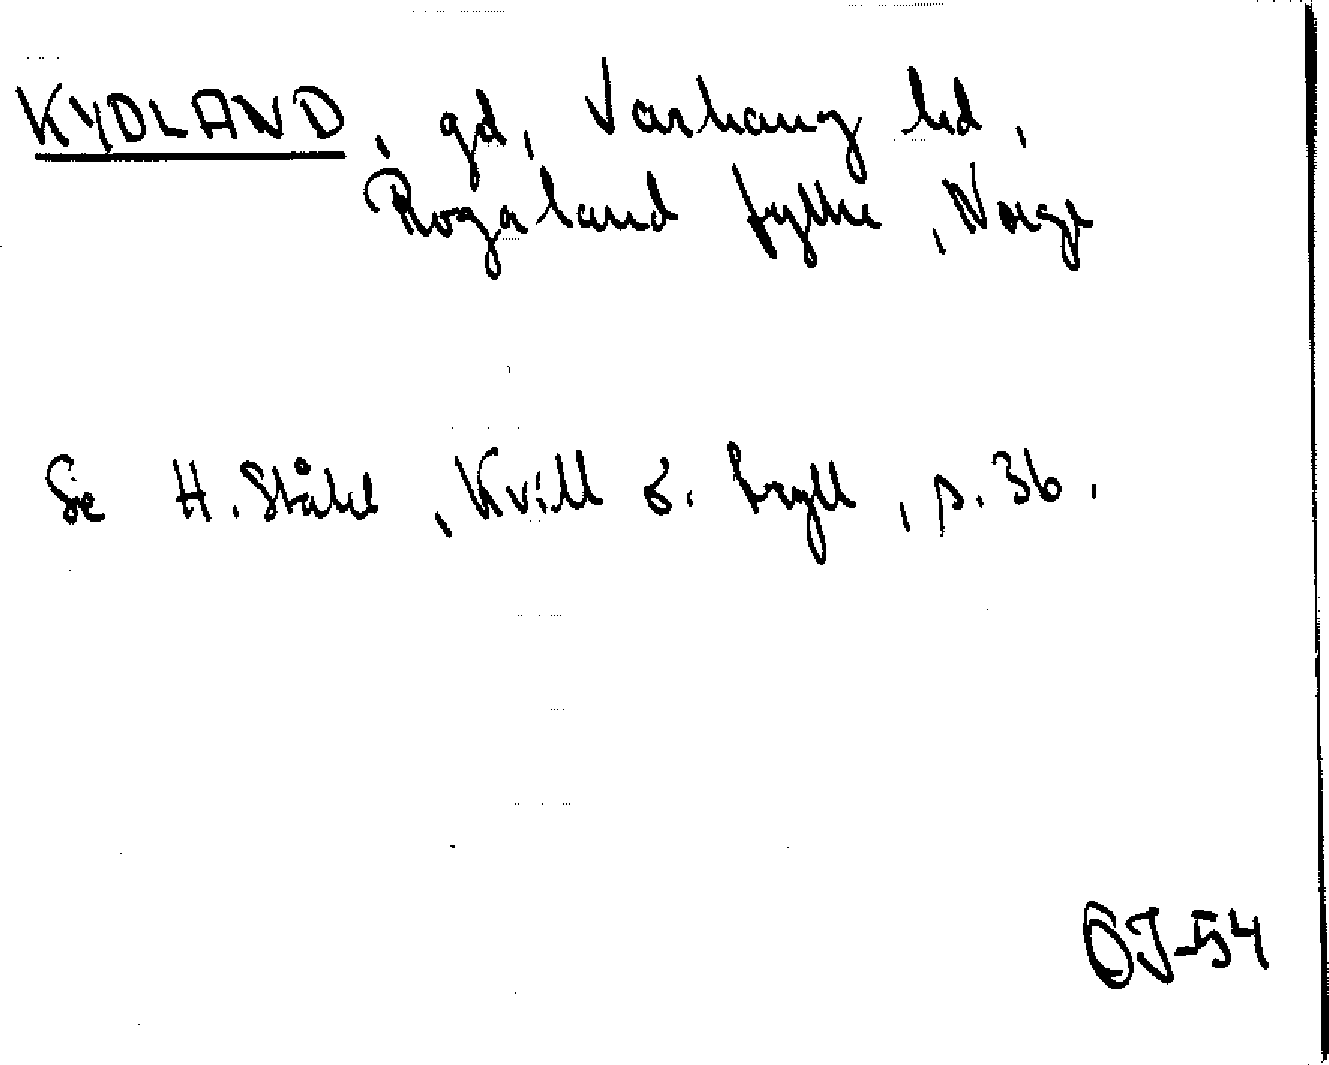 KYDLAND, gd, Varhaug hd,
Rogaland fylke, Norge
Se H. Ståhl, Kvill o. Tryll, p. 36.
ÖJ-54